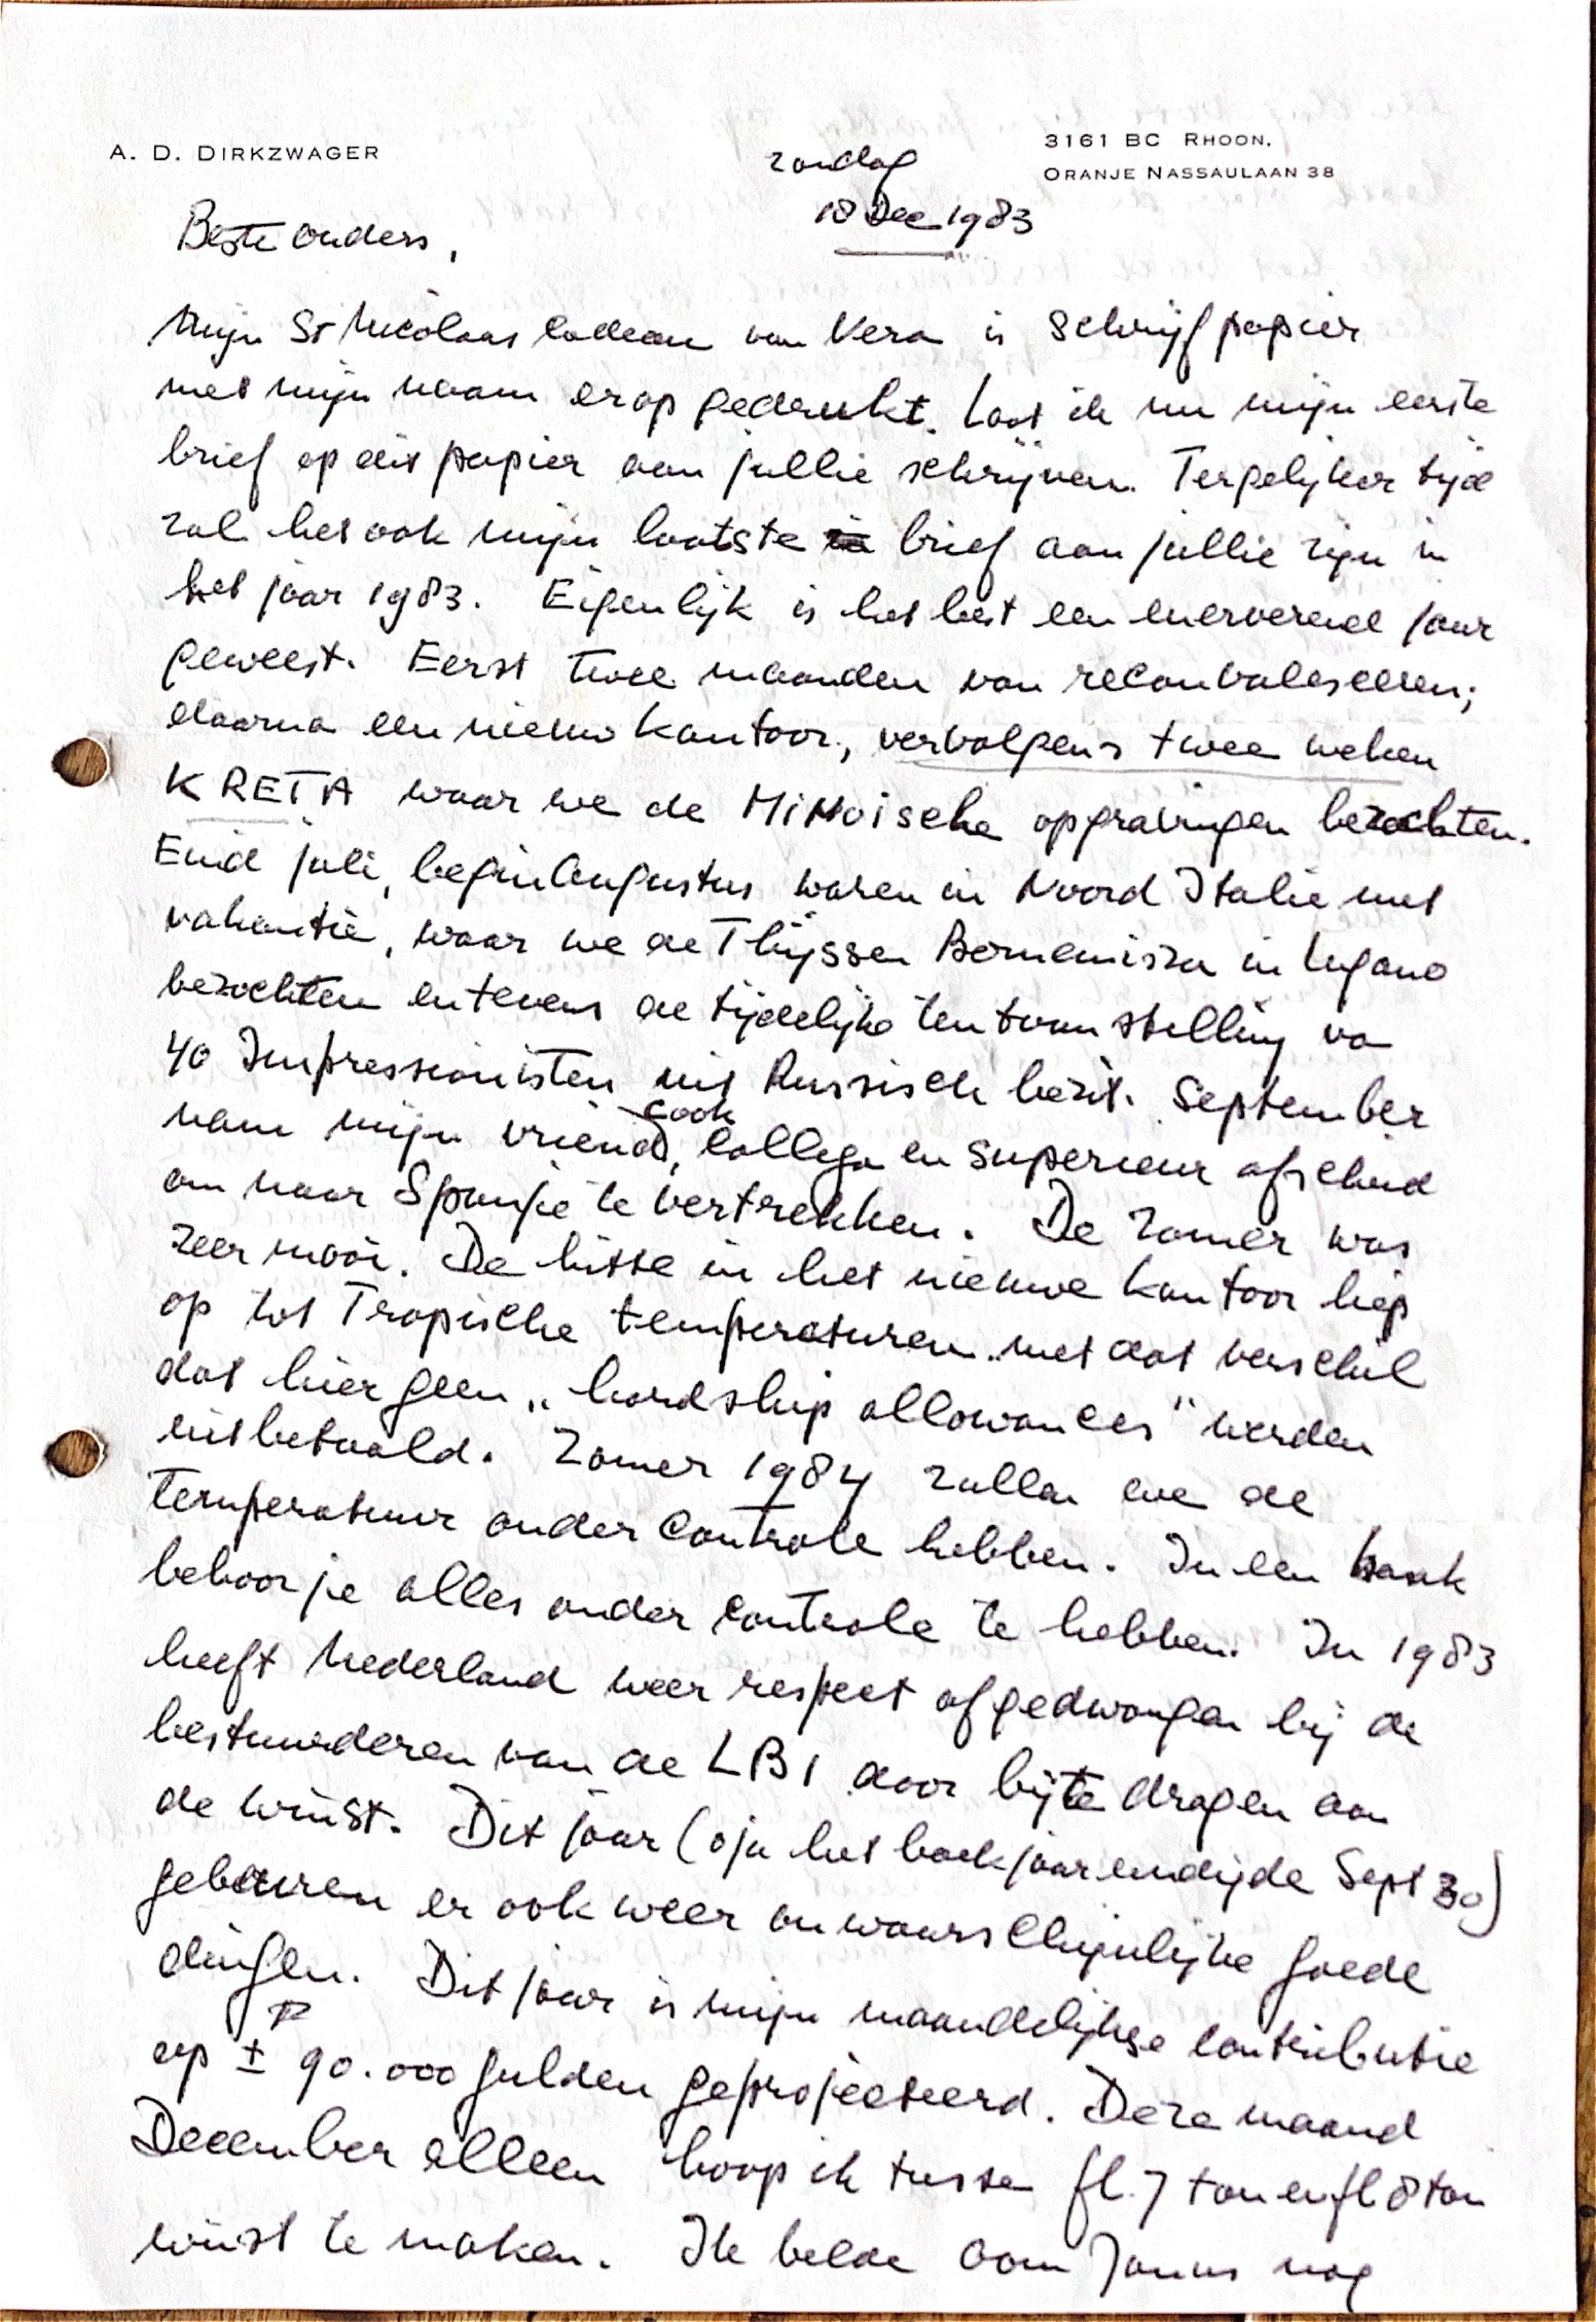 A. D. DIRKZWAGER
3161 BC RHOON.
ORANJE NASSAULAAN 38
zondag
18 Dec 1983
Beste ouders,
Mijn St Nicolaas cadeau van Vera is schrijfpapier
met mijn naam erop gedrukt. Laat ik nu mijn eerste
brief op dit papier aan jullie schrijven. Tergelijker tijd
zal het ook mijn laatste brief aan jullie zijn in
het jaar 1983. Eigenlijk is het best een enerverend jaar
geweest. Eerst twee maanden van reconvalesceren;
daarna een nieuw kantoor, vervolgens twee weken
KRETA waar we de MiNoische opgravingen bezochten.
Eind juli, begin Augustus waren in Noord Italie met
vakantie, waar we de Thijssen Bornemisza in Lugano
bezochten en tevens de tijdelijke tentoonstelling va
40 Impressionisten uit Russisch bezit. September
nam mijn vriend, ook collega en superieur afscheid
om naar Spanje te vertrekken. De zomer was
zeer mooi. De hitte in het nieuwe kantoor liep
op tot Tropische temperaturen met dat verschil
dat hier geen „hardship allowances" werden
uitbetaald. Zomer 1984 zullen we de
temperatuur onder controle hebben. In een bank
behoor je alles onder controle te hebben. In 1983
heeft Nederland weer respect afgedwongen bij de
bestuurderen van de LBI door bij te dragen aan
de winst. Dit jaar (oja het boekjaar eindigde Sept 30)
gebeuren er ook weer onwaarschijnlijke goede
dingen. Dit jaar is mijn maandelijkse contributie
op ± 90.000 gulden geprojecteerd. Deze maand
December alleen hoop ik tussen fl. 7 ton en fl 8 ton
winst te maken. Ik belde oom Janus nog